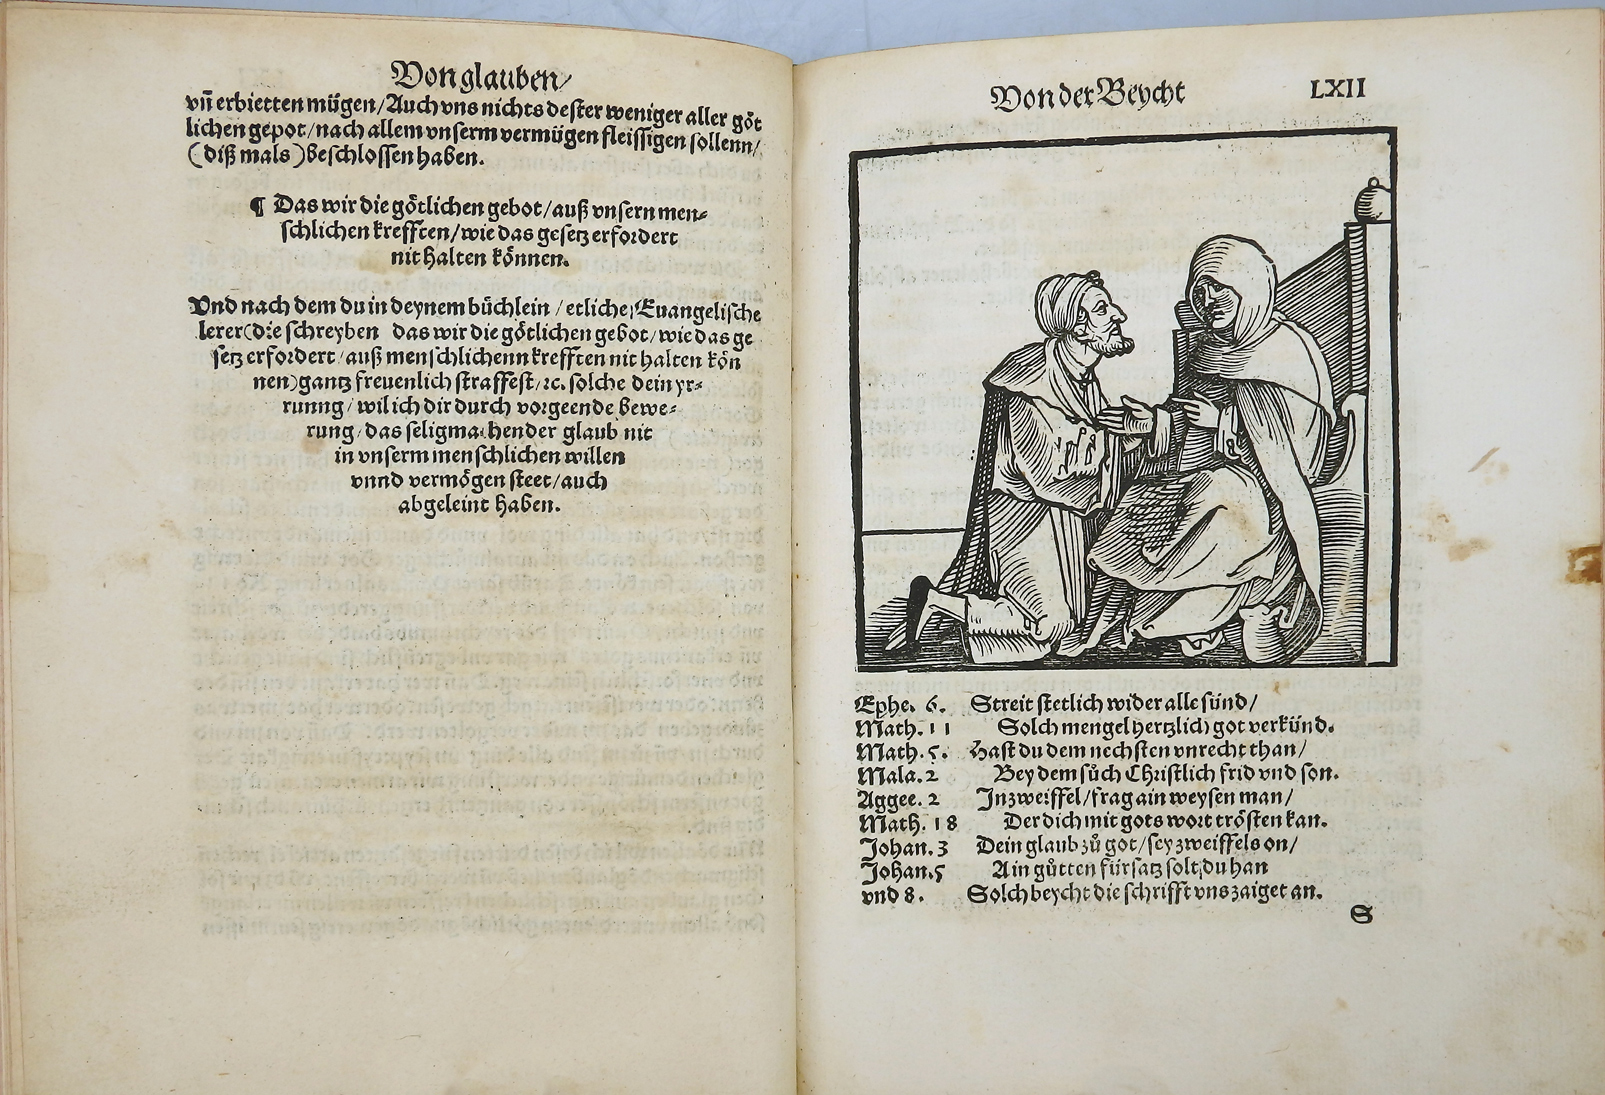 Von glauben/
vñ erbietten mügen/Auch vns nichts dester weniger aller göt
lichen gepot/nach allem vnserm vermügen fleissigen sollenn/
(diß mals) beschlossen haben.
¶ Das wir die götlichen gebot/auß vnsern men⸗
schlichen krefften/wie das gesetz erfordert
nit halten können.
Vnd nach dem du in deynem büchlein / etliche Euangelische
lerer(die schreyben das wir die götlichen gebot/wie das ge
setz erfordert/auß menschlichenn krefften nit halten kön
nen)gantz freuenlich straffest/ꝛc. solche dein yr⸗
runng/wil ich dir durch vorgeende bewe⸗
rung/das seligmachender glaub nit
in vnserm menschlichen willen
vnnd vermögen steet/auch
abgeleint haben.
Von der Beycht LXII
Ephe. 6. Streit stetlich wider alle sünd/
Math. 11 Solch mengel hertzlich got verkünd.
Math. 5. Hast du dem nechsten vnrecht than/
Mala. 2 Bey dem sůch Christlich frid vnd son.
Aggee. 2 In zweiffel/frag ain weysen man/
Math. 18 Der dich mit gots wort trösten kan.
Johan. 3 Dein glaub zů got/sey zweiffels on/
Johan. 5 Ain gůtten fürsatz solt du han
vnd 8. Solch beycht die schrifft vns zaiget an.
S